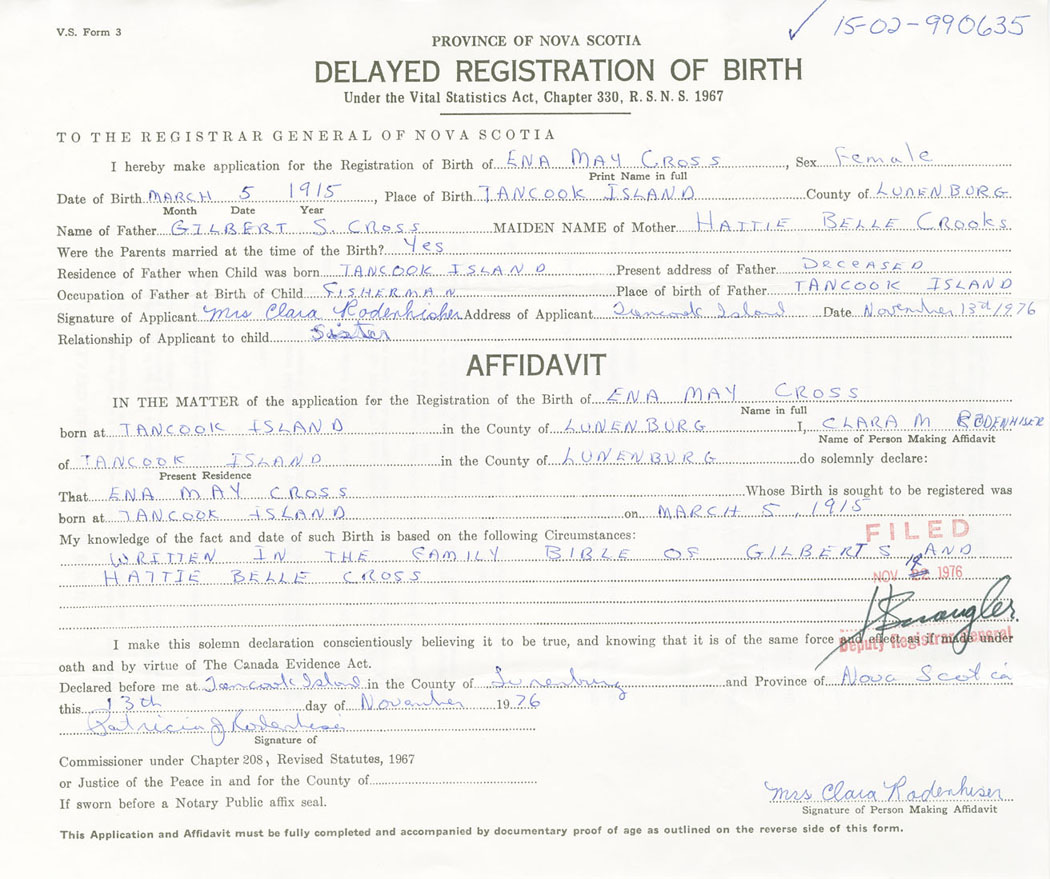 V.S. Form 3
✓ 15-02-990635
PROVINCE OF NOVA SCOTIA
DELAYED REGISTRATION OF BIRTH
Under the Vital Statistics Act, Chapter 330, R.S.N.S. 1967
TO THE REGISTRAR GENERAL OF NOVA SCOTIA
I hereby make application for the Registration of Birth of ENA MAY CROSS, Sex Female
Print Name in full
Date of Birth MARCH 5 1915, Place of Birth TANCOOK ISLAND County of LUNENBURG
Month Date Year
Name of Father GILBERT S. CROSS MAIDEN NAME of Mother HATTIE BELLE CROOKS
Were the Parents married at the time of the Birth? Yes
Residence of Father when Child was born TANCOOK ISLAND Present address of Father DECEASED
Occupation of Father at Birth of Child FISHERMAN Place of birth of Father TANCOOK ISLAND
Signature of Applicant Mrs Clara Rodenhiser Address of Applicant Tancook Island Date November 13rd/1976
Relationship of Applicant to child Sister
AFFIDAVIT
IN THE MATTER of the application for the Registration of the Birth of ENA MAY CROSS
Name in full
born at TANCOOK ISLAND in the County of LUNENBURG I, CLARA M RODENHISER
Name of Person Making Affidavit
of TANCOOK ISLAND in the County of LUNENBURG do solemnly declare:
Present Residence
That ENA MAY CROSS Whose Birth is sought to be registered was
born at TANCOOK ISLAND on MARCH 5, 1915
FILED
My knowledge of the fact and date of such Birth is based on the following Circumstances:
WRITTEN IN THE FAMILY BIBLE OF GILBERT S AND
HATTIE BELLE CROSS
NOV 19 1976
Deputy Registrar General
I make this solemn declaration conscientiously believing it to be true, and knowing that it is of the same force and effect as if made under
oath and by virtue of The Canada Evidence Act.
Declared before me at Tancook Island in the County of Lunenburg and Province of Nova Scotia
this 13th day of November 1976
Patricia J Rodenhiser
Signature of
Commissioner under Chapter 208, Revised Statutes, 1967
or Justice of the Peace in and for the County of
If sworn before a Notary Public affix seal.
Mrs Clara Rodenhiser
Signature of Person Making Affidavit
This Application and Affidavit must be fully completed and accompanied by documentary proof of age as outlined on the reverse side of this form.